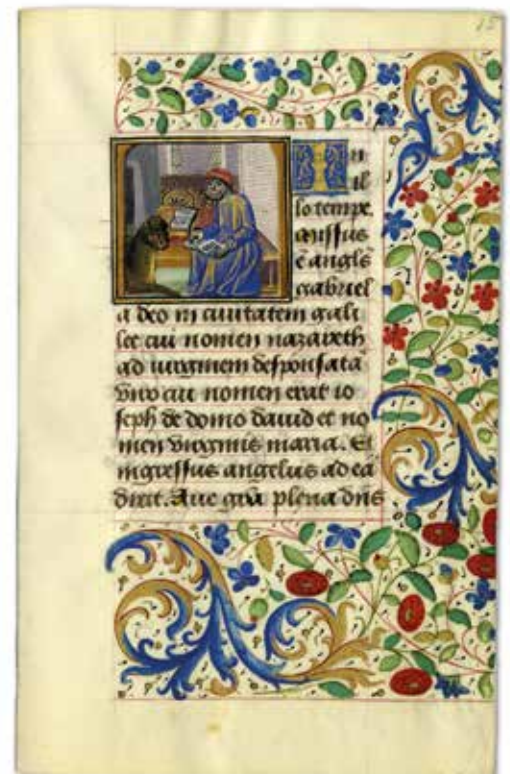 In
il
lo tempe.
missus
ē angls
gabriel
a deo in ciuitatem gali
lee cui nomen nazareth
ad uirginem desponsatā
viro cui nomen erat io
seph de domo dauid et no
men virginis maria. Et
ingressus angelus ad eā
dixit. Aue grā plena dns